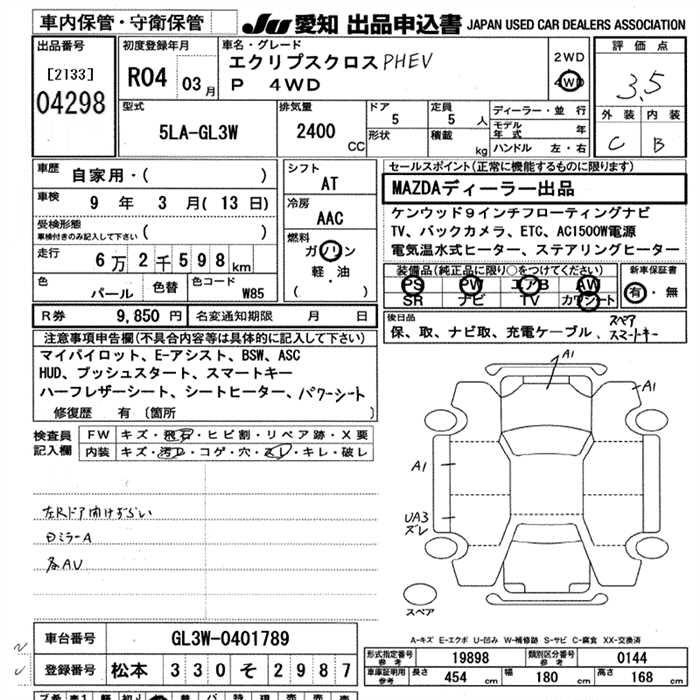 車内保管・守衛保管
JU 愛知 出品申込書 JAPAN USED CAR DEALERS ASSOCIATION
出品番号
[2133]
04298
初度登録年月
R04 03月
車名・グレード
エクリプスクロスPHEV
P 4WD
2WD
4WD
評価点
3.5
外装 内装
C B
型式
5LA-GL3W
排気量
2400
CC
ドア
5
形状
定員
5 人
積載
kg
ディーラー・並行
モデル年式 年
ハンドル 左・右
車歴
自家用・( )
車検
9 年 3 月( 13 日)
受検形態
車検付きのみ記入して下さい ( )
走行
6万2千598km
色
パール
色替
色コード
W85
シフト
AT
冷房
AAC
燃料
ガソリン
軽・油
( )
セールスポイント(正常に機能するものに限ります)
MAZDAディーラー出品
ケンウッド9インチフローティングナビ
TV、バックカメラ、ETC、AC1500W電源
電気温水式ヒーター、ステアリングヒーター
装備品(純正品に限り○をつけてください)
PS PW エアB AW
SR ナビ TV カワシート
新車保証書
有・無
R券 9,850円 名変通知期限 月 日
後日品
保、取、ナビ取、充電ケーブル、スペアスマートキー
注意事項申告欄(不具合内容等は具体的に記入して下さい)
マイパイロット、E-アシスト、BSW、ASC
HUD、プッシュスタート、スマートキー
ハーフレザーシート、シートヒーター、パワーシート
修復歴 有 〔箇所 〕
検査員記入欄
FW キズ・飛石・ヒビ割・リペア跡・X要
内装 キズ・汚レ・コゲ・穴・スレ・キレ・破レ
左Rドア開けずらい
ミラーA
各AU
A1
A1
A1
UA3
ズレ
スペア
A-キズ E-エクボ U-凹み W-補修跡 S-サビ C-腐食 XX-交換済
車台番号 GL3W-0401789
登録番号 松本 330 そ 2987
形式指定番号 参考 19898 類別区分番号 参考 0144
車庫証明用 参考 長さ 454 cm 幅 180 cm 高さ 168 cm